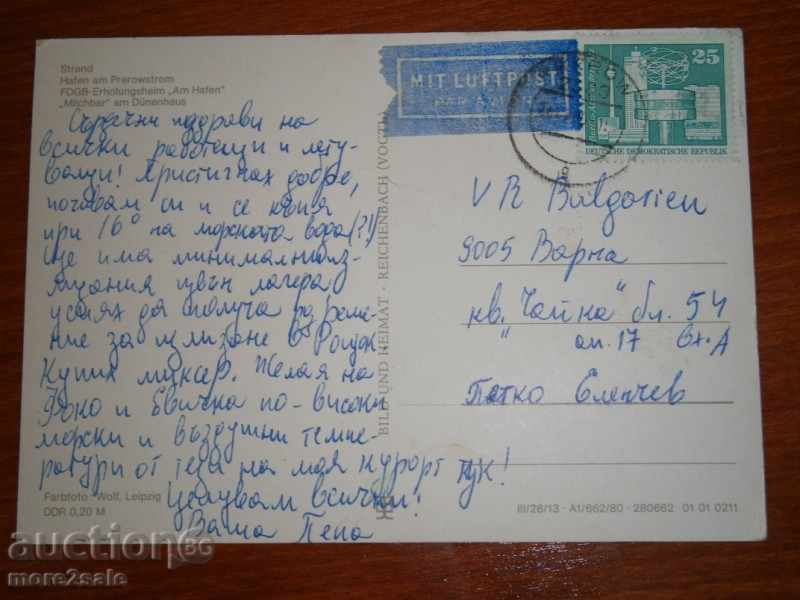 Strand
Hafen am Prerowstrom
FDGB-Erholungsheim „Am Hafen"
„Milchbar" am Dünenhaus
MIT LUFTPOST
PAR AVION
25
DEUTSCHE DEMOKRATISCHE REPUBLIK
Сърдечни поздрави на
всички работещи и лету-
ващи! Пристигнах добре,
почивам си и се къпя
при 16° на морската вода (?!)
Ще има минимални из-
явления извън лагера
успях да получа разреше-
ние за излизане в Рощок.
Купих миксер. Желая на
Фоно и Евичка по-високи
морски и въздушни темпе-
ратури от тези на моя курорт тук!
Целувам всички!
Ваша Пепа
VR Bulgarien
9005 Варна
кв. "Чайка" бл. 54
ап. 17 вх. А
Петко Еленчев
BILD UND HEIMAT · REICHENBACH (VOGTL)
Farbfoto: Wolf, Leipzig
DDR 0,20 M
III/26/13 · A1/662/80 · 280662 01 01 0211
auction
more2sale